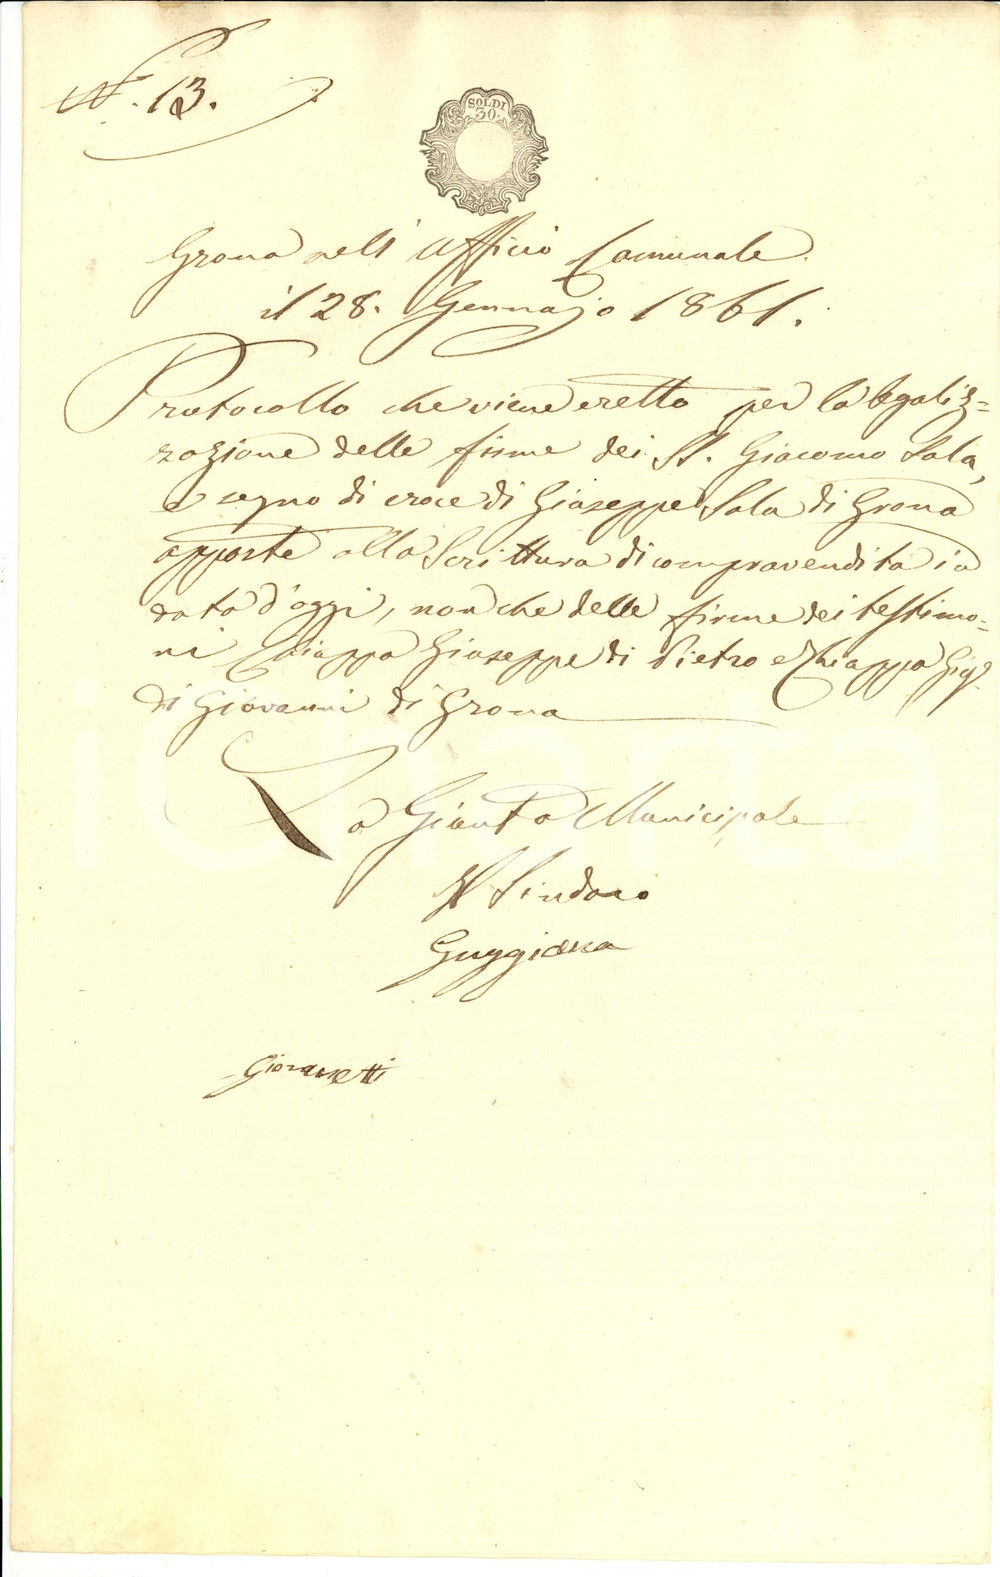 N. 13.
SOLDI
30.
Grona nell' Ufficio Comunale
il 28. Gennajo 1861.
Protocollo che viene eretto per la legaliz=
zazione delle firme dei SS. Giacomo Sala,
e segno di croce di Giuseppe Sala di Grona
apposte alla Scrittura di compravendita in
data d'oggi, non che delle firme dei testimo=
ni Chiappa Giuseppe di Pietro e Chiappa Gio.
di Giovanni di Grona
La Giunta Municipale
Il Sindaco
Guggiana
Giovanetti